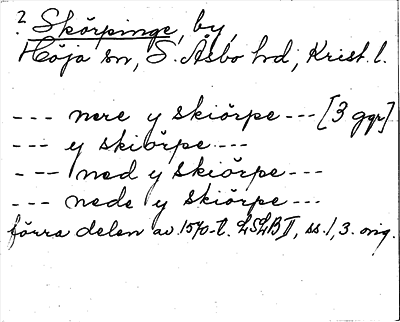 ? Skörpinge, by,
Höja sn, S. Åsbo hd, Krist. l.
--- nere y skiörpe --- [3 ggr]
--- y skiörpe ---
--- ned y skiörpe ---
--- nede y skiörpe ---
förra delen av 1570-t. LSLB II, ss. 1, 3. orig.